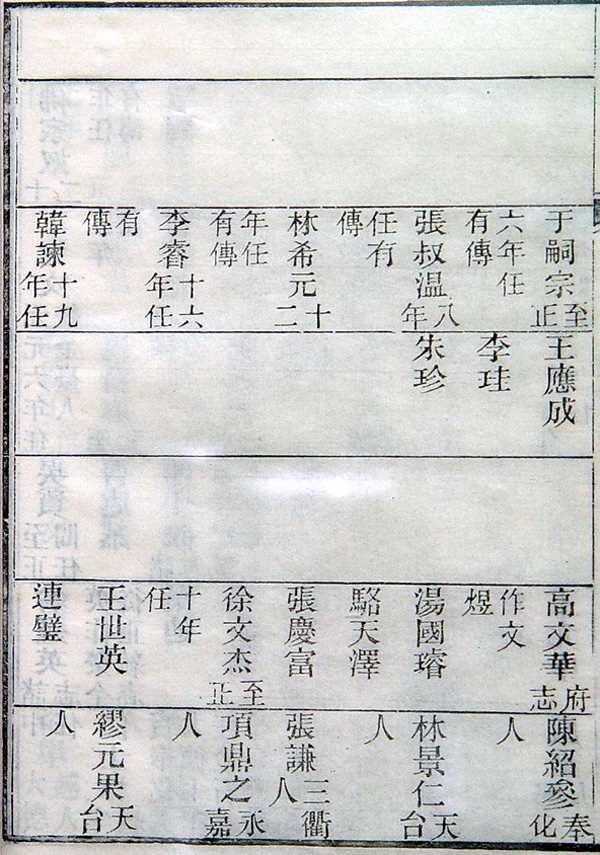 于嗣宗至正
六年任有傳
張叔温八年
任有傳
林希元十二
年任有傳
李睿十六年任
有傳
韓諫十九年任
王應成
李珪
朱珍
高文華府志
作文煜
湯國璿
駱天澤
張慶富
徐文杰至正
十年任
王世英
連璧
陳紹參奉化
人
林景仁天台
人
張謙三衢人
項鼎之永嘉
人
繆元果天台
人